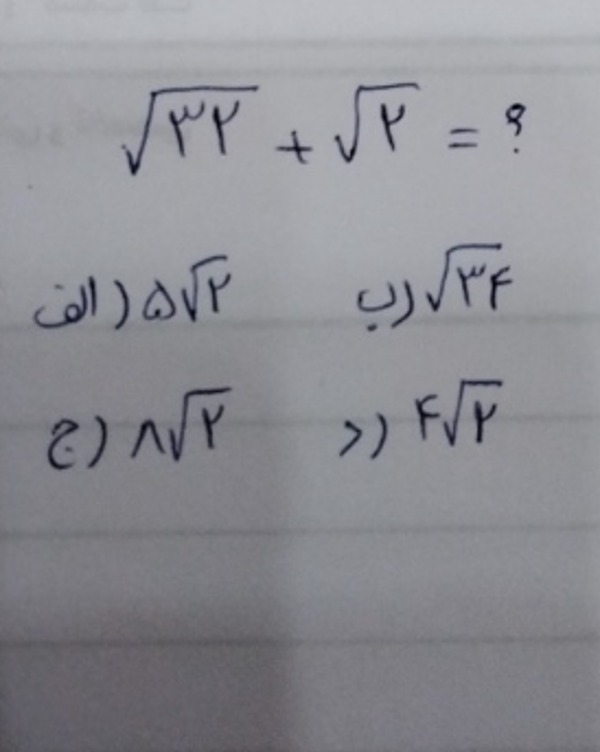 √۳۲ + √۲ = ؟
الف) ۵√۲ ب) √۳۴
ج) ۸√۲ د) ۴√۲